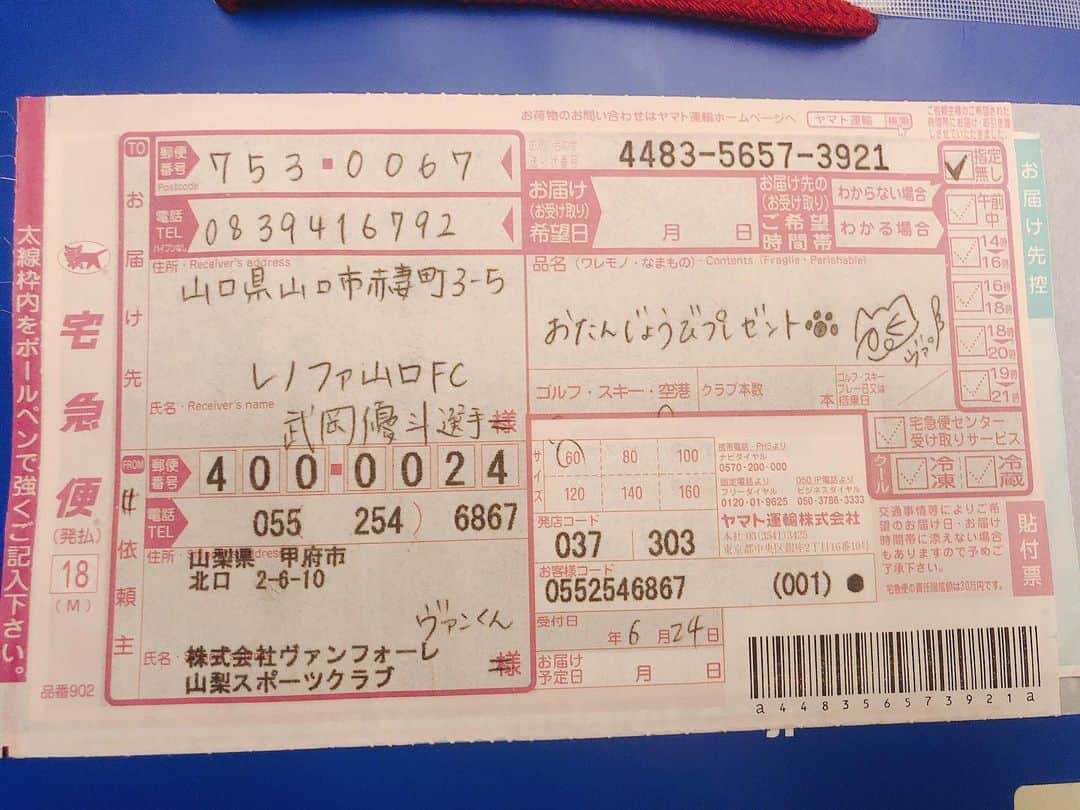 お荷物のお問い合わせはヤマト運輸ホームページへ ヤマト運輸 検索
太線枠内をボールペンで強くご記入下さい。
宅急便
(発払)
18
(M)
品番902
TO
お届け先
郵便番号
Postcode
753-0067
電話
TEL
ハイフンなし
0839416792
住所・Receiver's address
山口県山口市赤妻町3-5
レノファ山口FC
氏名・Receiver's name
武岡優斗選手様
FROM
ご依頼主
郵便番号
400-0024
電話
TEL
055 254) 6867
住所
山梨県 甲府市
北口 2-6-10
ヴァンくん
氏名
株式会社ヴァンフォーレ
山梨スポーツクラブ
様
4483-5657-3921
お届け
(お受け取り)
希望日
月 日
お届け先の
(お受け取り)
ご希望
時間帯
わからない場合
わかる場合
指定無し
午前中
14時
16時
16時
18時
18時
20時
19時
21時
品名(ワレモノ・なまもの)・Contents (Fragile・Perishable)
おたんじょうびプレゼント
ヴァン
ゴルフ・スキー・空港
クラブ本数
本
ゴルフ・スキー
プレー日又は
搭乗日
宅急便センター
受け取りサービス
クール
冷凍
冷蔵
サイズ
60 80 100
120 140 160
携帯電話・PHSより
ナビダイヤル
0570-200-000
固定電話より
フリーダイヤル
0120-01-9625
050、IP電話より
ビジネスダイヤル
050-3786-3333
ヤマト運輸株式会社
本社 03(3541)3425
東京都中央区銀座2丁目16番10号
発店コード
037 303
お客様コード
0552546867 (001) ●
受付日
年6月24日
お届け
予定日
月 日
交通事情等によりご希
望のお届け日・お届け
時間帯に添えない場合
もありますので予めご
了承下さい。
宅急便の責任限度額は30万円です。
お届け先控
貼付票
a448356573921a